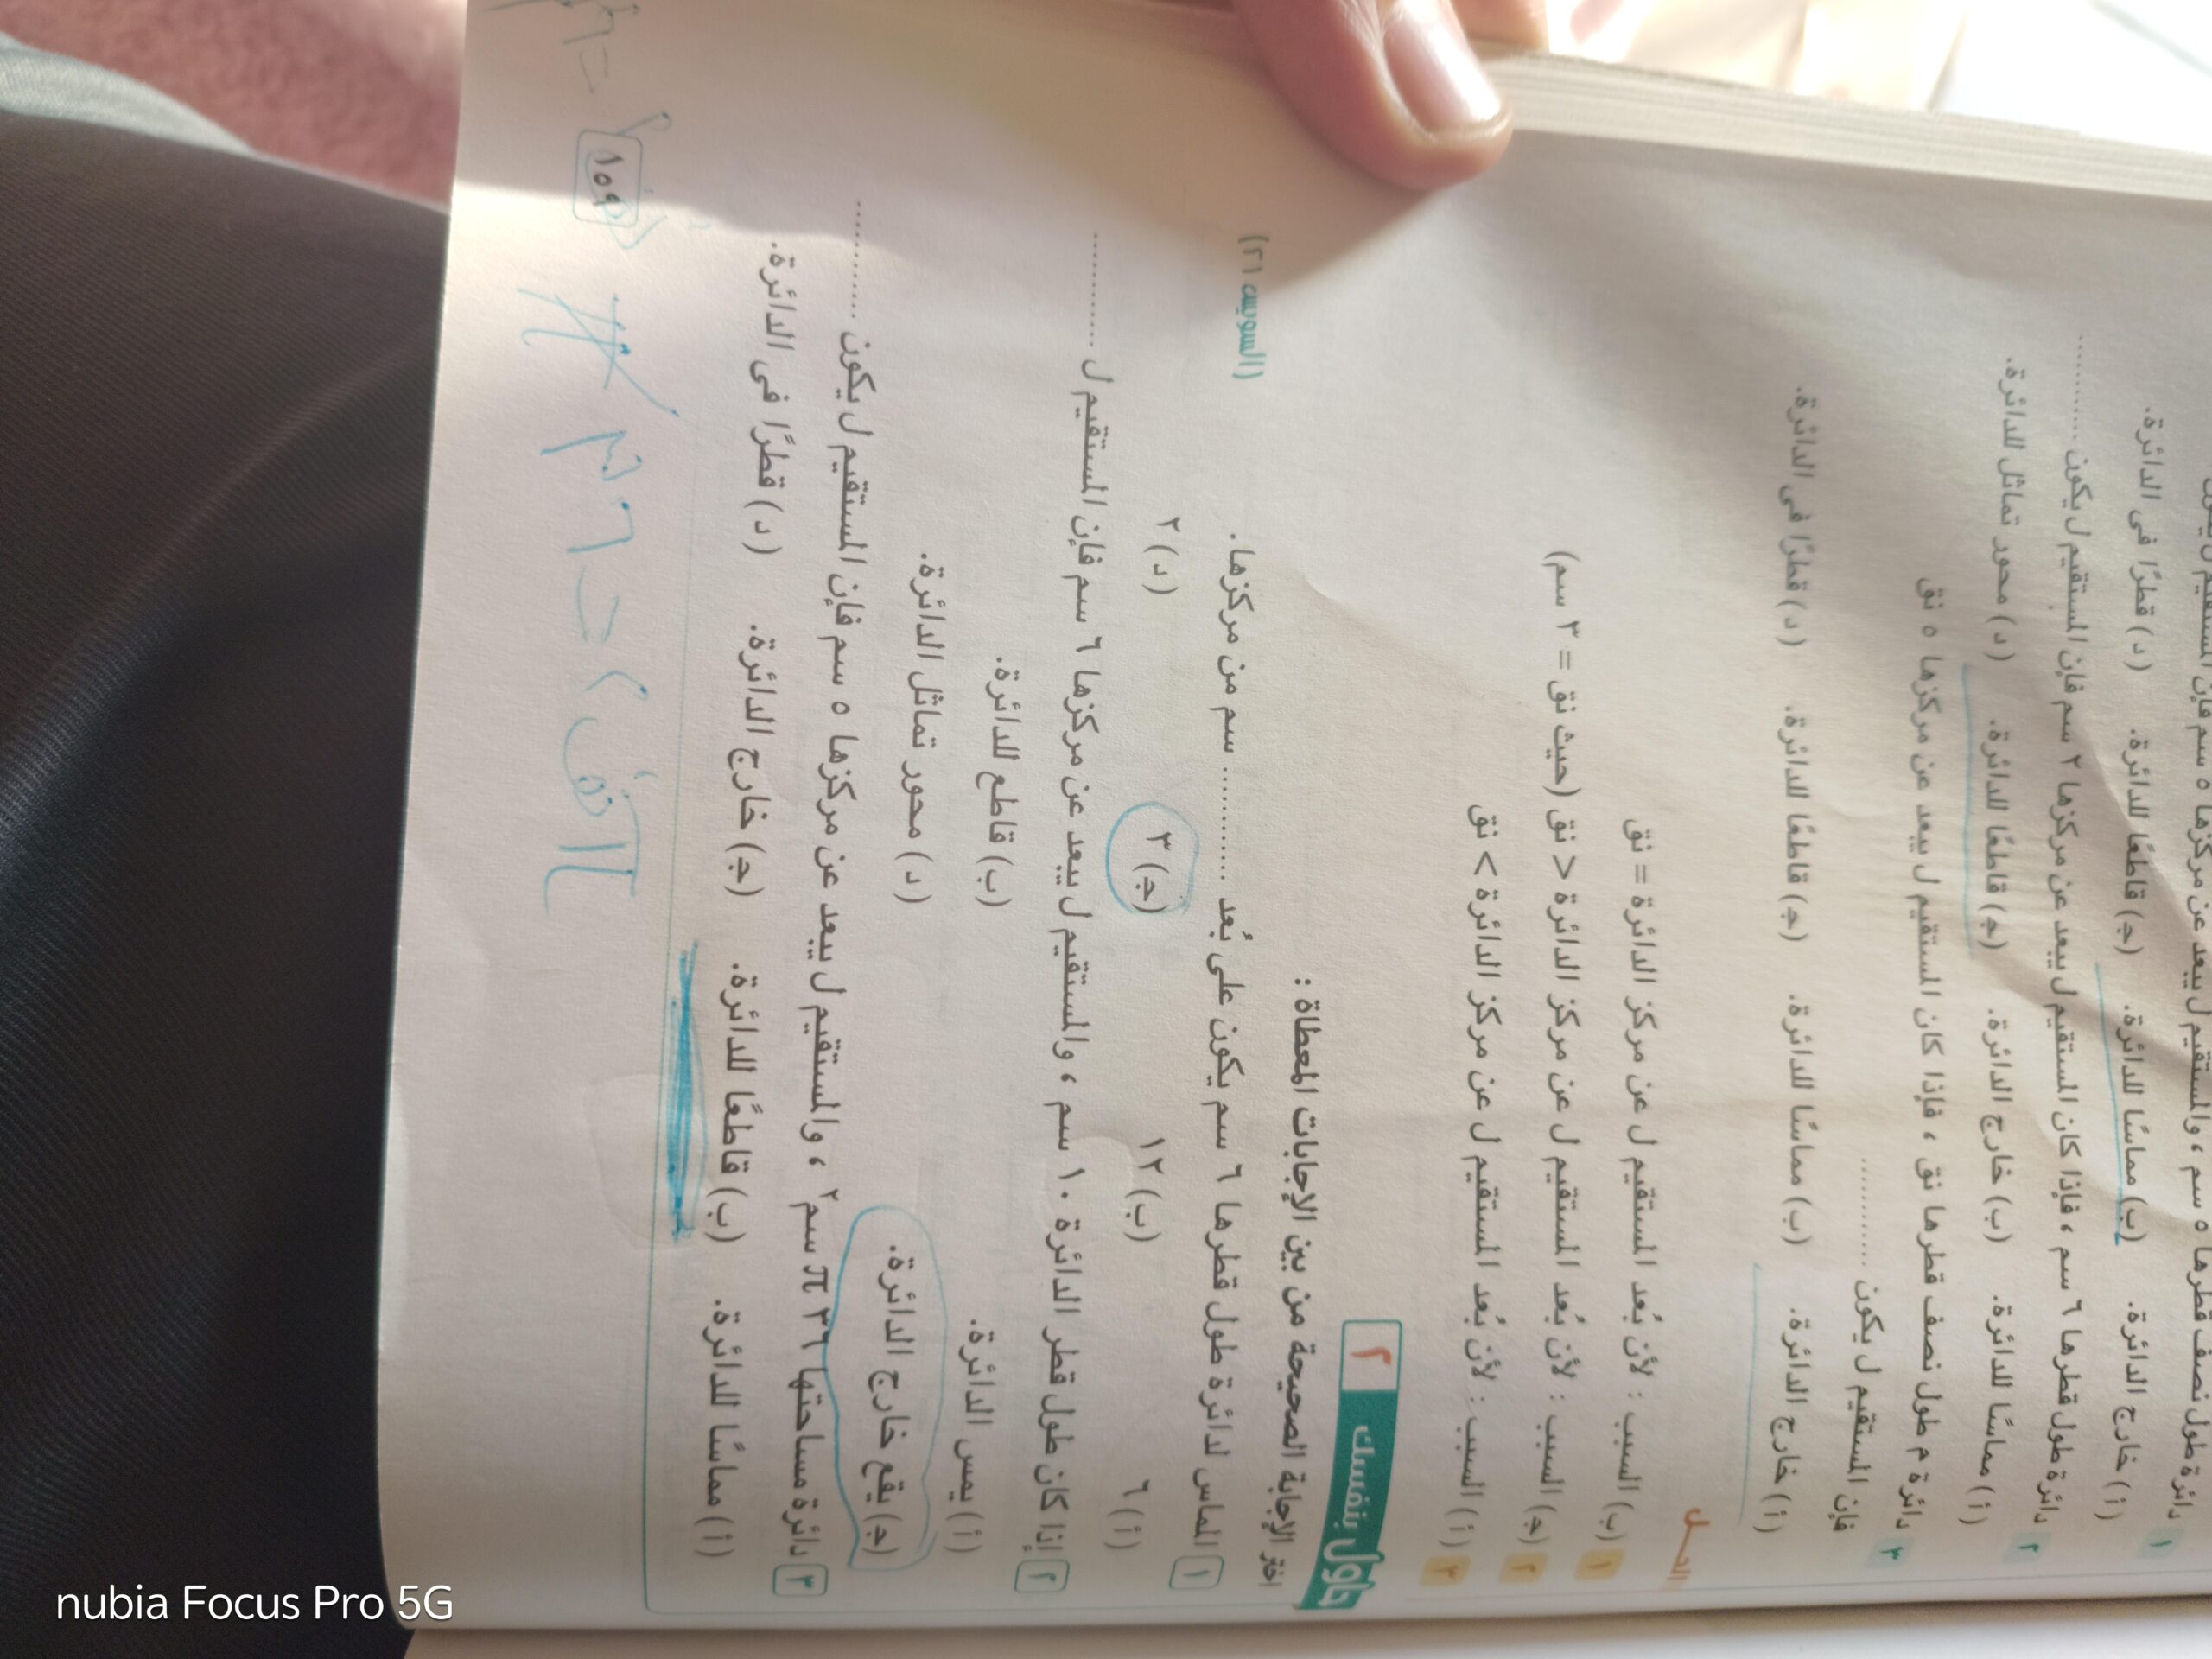 ١ دائرة طول نصف قطرها ٥ سم ، والمستقيم ل يبعد عن مركزها ٥ سم فإن
(أ) خارج الدائرة. (ب) مماسًا للدائرة. (ج) قاطعًا للدائرة. (د) قطرًا فى الدائرة.
٢ دائرة طول قطرها ٦ سم ، فإذا كان المستقيم ل يبعد عن مركزها ٢ سم فإن المستقيم ل يكون ..........
(أ) مماسًا للدائرة. (ب) خارج الدائرة. (ج) قاطعًا للدائرة. (د) محور تماثل للدائرة.
٣ دائرة م طول نصف قطرها نق ، فإذا كان المستقيم ل يبعد عن مركزها ٥ نق
فإن المستقيم ل يكون ..........
(أ) خارج الدائرة. (ب) مماسًا للدائرة. (ج) قاطعًا للدائرة. (د) قطرًا فى الدائرة.
الحـــل
١ (ب) السبب : لأن بُعد المستقيم ل عن مركز الدائرة = نق
٢ (ج) السبب : لأن بُعد المستقيم ل عن مركز الدائرة < نق (حيث نق = ٣ سم)
٣ (أ) السبب : لأن بُعد المستقيم ل عن مركز الدائرة > نق
حاول بنفسك ٢
اختر الإجابة الصحيحة من بين الإجابات المعطاة :
١ المماس لدائرة طول قطرها ٦ سم يكون على بُعد .......... سم من مركزها. (السويس ٢١)
(أ) ٦ (ب) ١٢ (ج) ٣ (د) ٢
٢ إذا كان طول قطر الدائرة ١٠ سم ، والمستقيم ل يبعد عن مركزها ٦ سم فإن المستقيم ل ..........
(أ) يمس الدائرة. (ب) قاطع للدائرة.
(ج) يقع خارج الدائرة. (د) محور تماثل الدائرة.
٣ دائرة مساحتها ٣٦ π سم٢ ، والمستقيم ل يبعد عن مركزها ٥ سم فإن المستقيم ل يكون ..........
(أ) مماسًا للدائرة. (ب) قاطعًا للدائرة. (ج) خارج الدائرة. (د) قطرًا فى الدائرة.
١٥٩
nubia Focus Pro 5G